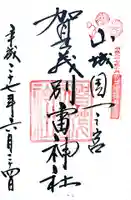 山城國一之宮
賀茂別雷神社
平成二十七年六月二十四日